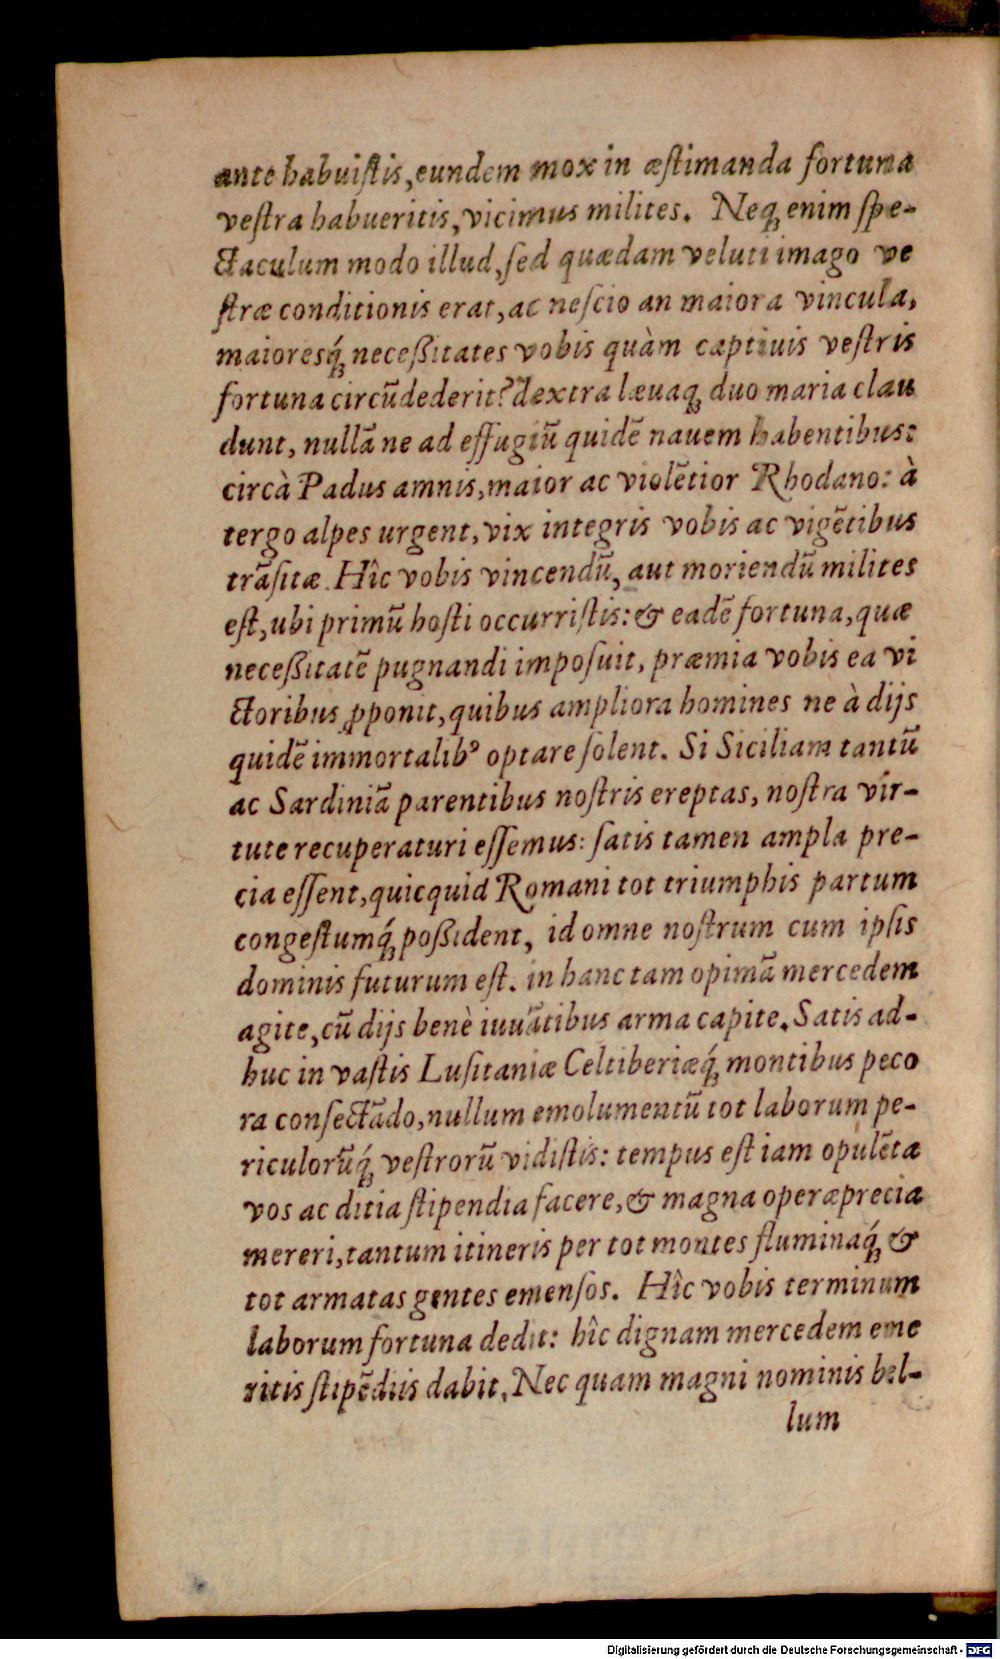 ante habuiſtis, eundem mox in æſtimanda fortuna
veſtra habueritis, vicimus milites. Neqꝫ enim ſpe-
ctaculum modo illud, ſed quædam veluti imago ve
ſtræ conditionis erat, ac neſcio an maiora vincula,
maioresq́ꝫ neceßitates vobis quàm captiuis veſtris
fortuna circũdederit? dextra læuaqꝫ duo maria clau
dunt, nullã ne ad effugiũ quidẽ nauem habentibus:
circà Padus amnis, maior ac violẽtior Rhodano: à
tergo alpes urgent, vix integris vobis ac vigẽtibus
trãſitæ. Hîc vobis vincendũ, aut moriendũ milites
eſt, ubi primũ hoſti occurriſtis: & eadẽ fortuna, quæ
neceßitatẽ pugnandi impoſuit, præmia vobis ea vi
ctoribus ꝓponit, quibus ampliora homines ne à dijs
quidẽ immortalibꝰ optare ſolent. Si Siciliam tantũ
ac Sardiniã parentibus noſtris ereptas, noſtra vir-
tute recuperaturi eſſemus: ſatis tamen ampla pre-
cia eſſent, quicquid Romani tot triumphis partum
congeſtumq́ꝫ poßident, id omne noſtrum cum ipſis
dominis futurum eſt. in hanc tam opimã mercedem
agite, cũ dijs benè iuuãtibus arma capite. Satis ad-
huc in vaſtis Luſitaniæ Celtiberiæq́ꝫ montibus peco
ra conſectãdo, nullum emolumentũ tot laborum pe-
riculorũq́ꝫ veſtrorũ vidiſtis: tempus eſt iam opulẽta
vos ac ditia ſtipendia facere, & magna operæprecia
mereri, tantum itineris per tot montes fluminaq́ꝫ &
tot armatas gentes emenſos. Hîc vobis terminum
laborum fortuna dedit: hîc dignam mercedem eme
ritis ſtipẽdiis dabit, Nec quam magni nominis bel-
lum
Digitalisierung gefördert durch die Deutsche Forschungsgemeinschaft - DFG